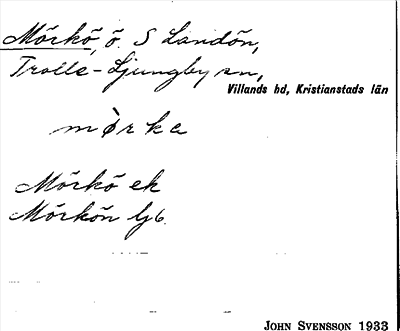 Mörkö, ö. S Landön,
Trolle-Ljungby sn,
Villands hd, Kristianstads län
mòrka
Mörkö ek
Mörkön Gj6.
JOHN SVENSSON 1933